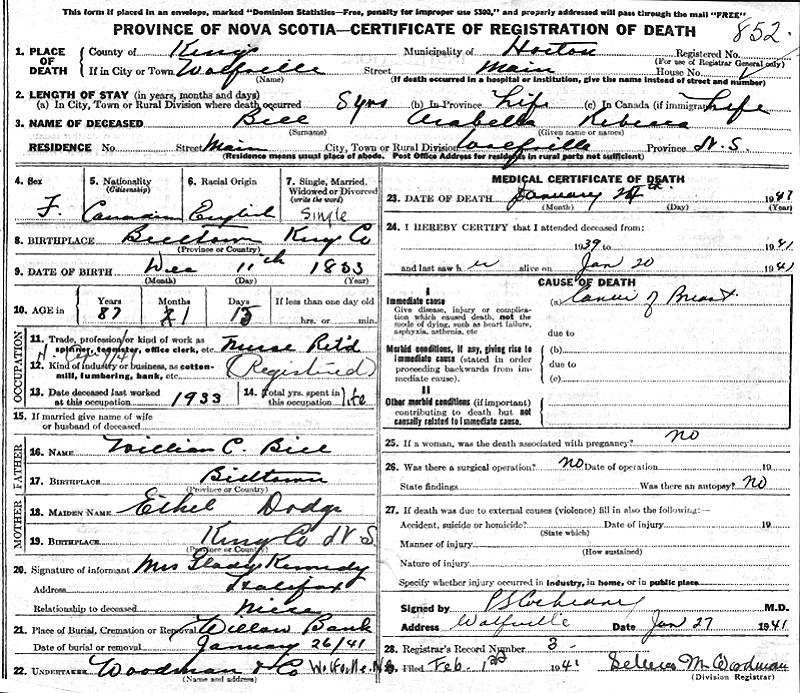 This form if placed in an envelope, marked "Dominion Statistics—Free, penalty for improper use $300," and properly addressed will pass through the mail "FREE"
PROVINCE OF NOVA SCOTIA—CERTIFICATE OF REGISTRATION OF DEATH
852.
1. PLACE OF DEATH
County of Kings Municipality of Horton Registered No.
(For use of Registrar General only)
If in City or Town Wolfville Street Main House No.
(Name) (If death occurred in a hospital or institution, give the name instead of street and number)
2. LENGTH OF STAY (in years, months and days)
(a) In City, Town or Rural Division where death occurred 8 yrs (b) In Province Life (c) In Canada (if immigrant) Life
3. NAME OF DECEASED Bill Arabella Rebecca
(Surname) (Given name or names)
RESIDENCE No. Street Main City, Town or Rural Division Wolfville Province N.S.
(Residence means usual place of abode. Post Office Address for residents in rural parts not sufficient)
4. Sex F.
5. Nationality (Citizenship) Canadian
6. Racial Origin English
7. Single, Married, Widowed or Divorced (write the word) Single
8. BIRTHPLACE Billtown Kings Co
(Province or Country)
9. DATE OF BIRTH Dec 11th 1853
(Month) (Day) (Year)
10. AGE in Years 87 Months 1 Days If less than one day old hrs. or min.
OCCUPATION
11. Trade, profession or kind of work as spinner, teamster, office clerk, etc. Nurse Ret'd
12. Kind of industry or business, as cotton-mill, lumbering, bank, etc. (Registered)
13. Date deceased last worked at this occupation 1933
14. Total yrs. spent in this occupation life
15. If married give name of wife or husband of deceased
FATHER
16. NAME William C. Bill
17. BIRTHPLACE Billtown
(Province or Country)
MOTHER
18. MAIDEN NAME Ethel Dodge
19. BIRTHPLACE Kings Co N.S.
(Province or Country)
20. Signature of informant Mrs Gladys Kennedy
Address Halifax
Relationship to deceased Niece
21. Place of Burial, Cremation or Removal Willow Bank
Date of burial or removal January 26/41
22. UNDERTAKER Woodman & Co Wolfville N.S.
(Name and address)
MEDICAL CERTIFICATE OF DEATH
23. DATE OF DEATH January 24th 1941
(Month) (Day) (Year)
24. I HEREBY CERTIFY that I attended deceased from:
1939 to 1941
and last saw her alive on Jan 20 1941
CAUSE OF DEATH
I
Immediate cause (a) Cancer of Breast.
Give disease, injury or complication which caused death, not the mode of dying, such as heart failure, asphyxia, asthenia, etc
due to
Morbid conditions, if any, giving rise to immediate cause (stated in order proceeding backwards from immediate cause).
(b)
due to
(c)
II
Other morbid conditions (if important) contributing to death but not causally related to immediate cause.
25. If a woman, was the death associated with pregnancy? no
26. Was there a surgical operation? no Date of operation 19
State findings Was there an autopsy? No
27. If death was due to external causes (violence) fill in also the following:—
Accident, suicide or homicide? Date of injury 19
(State which)
Manner of injury
(How sustained)
Nature of injury
Specify whether injury occurred in industry, in home, or in public place
Signed by P S Cochrane M.D.
Address Wolfville Date Jan 27 1941
28. Registrar's Record Number 3.
29. Filed Feb. 1st 1941 M. Woodman
(Division Registrar)